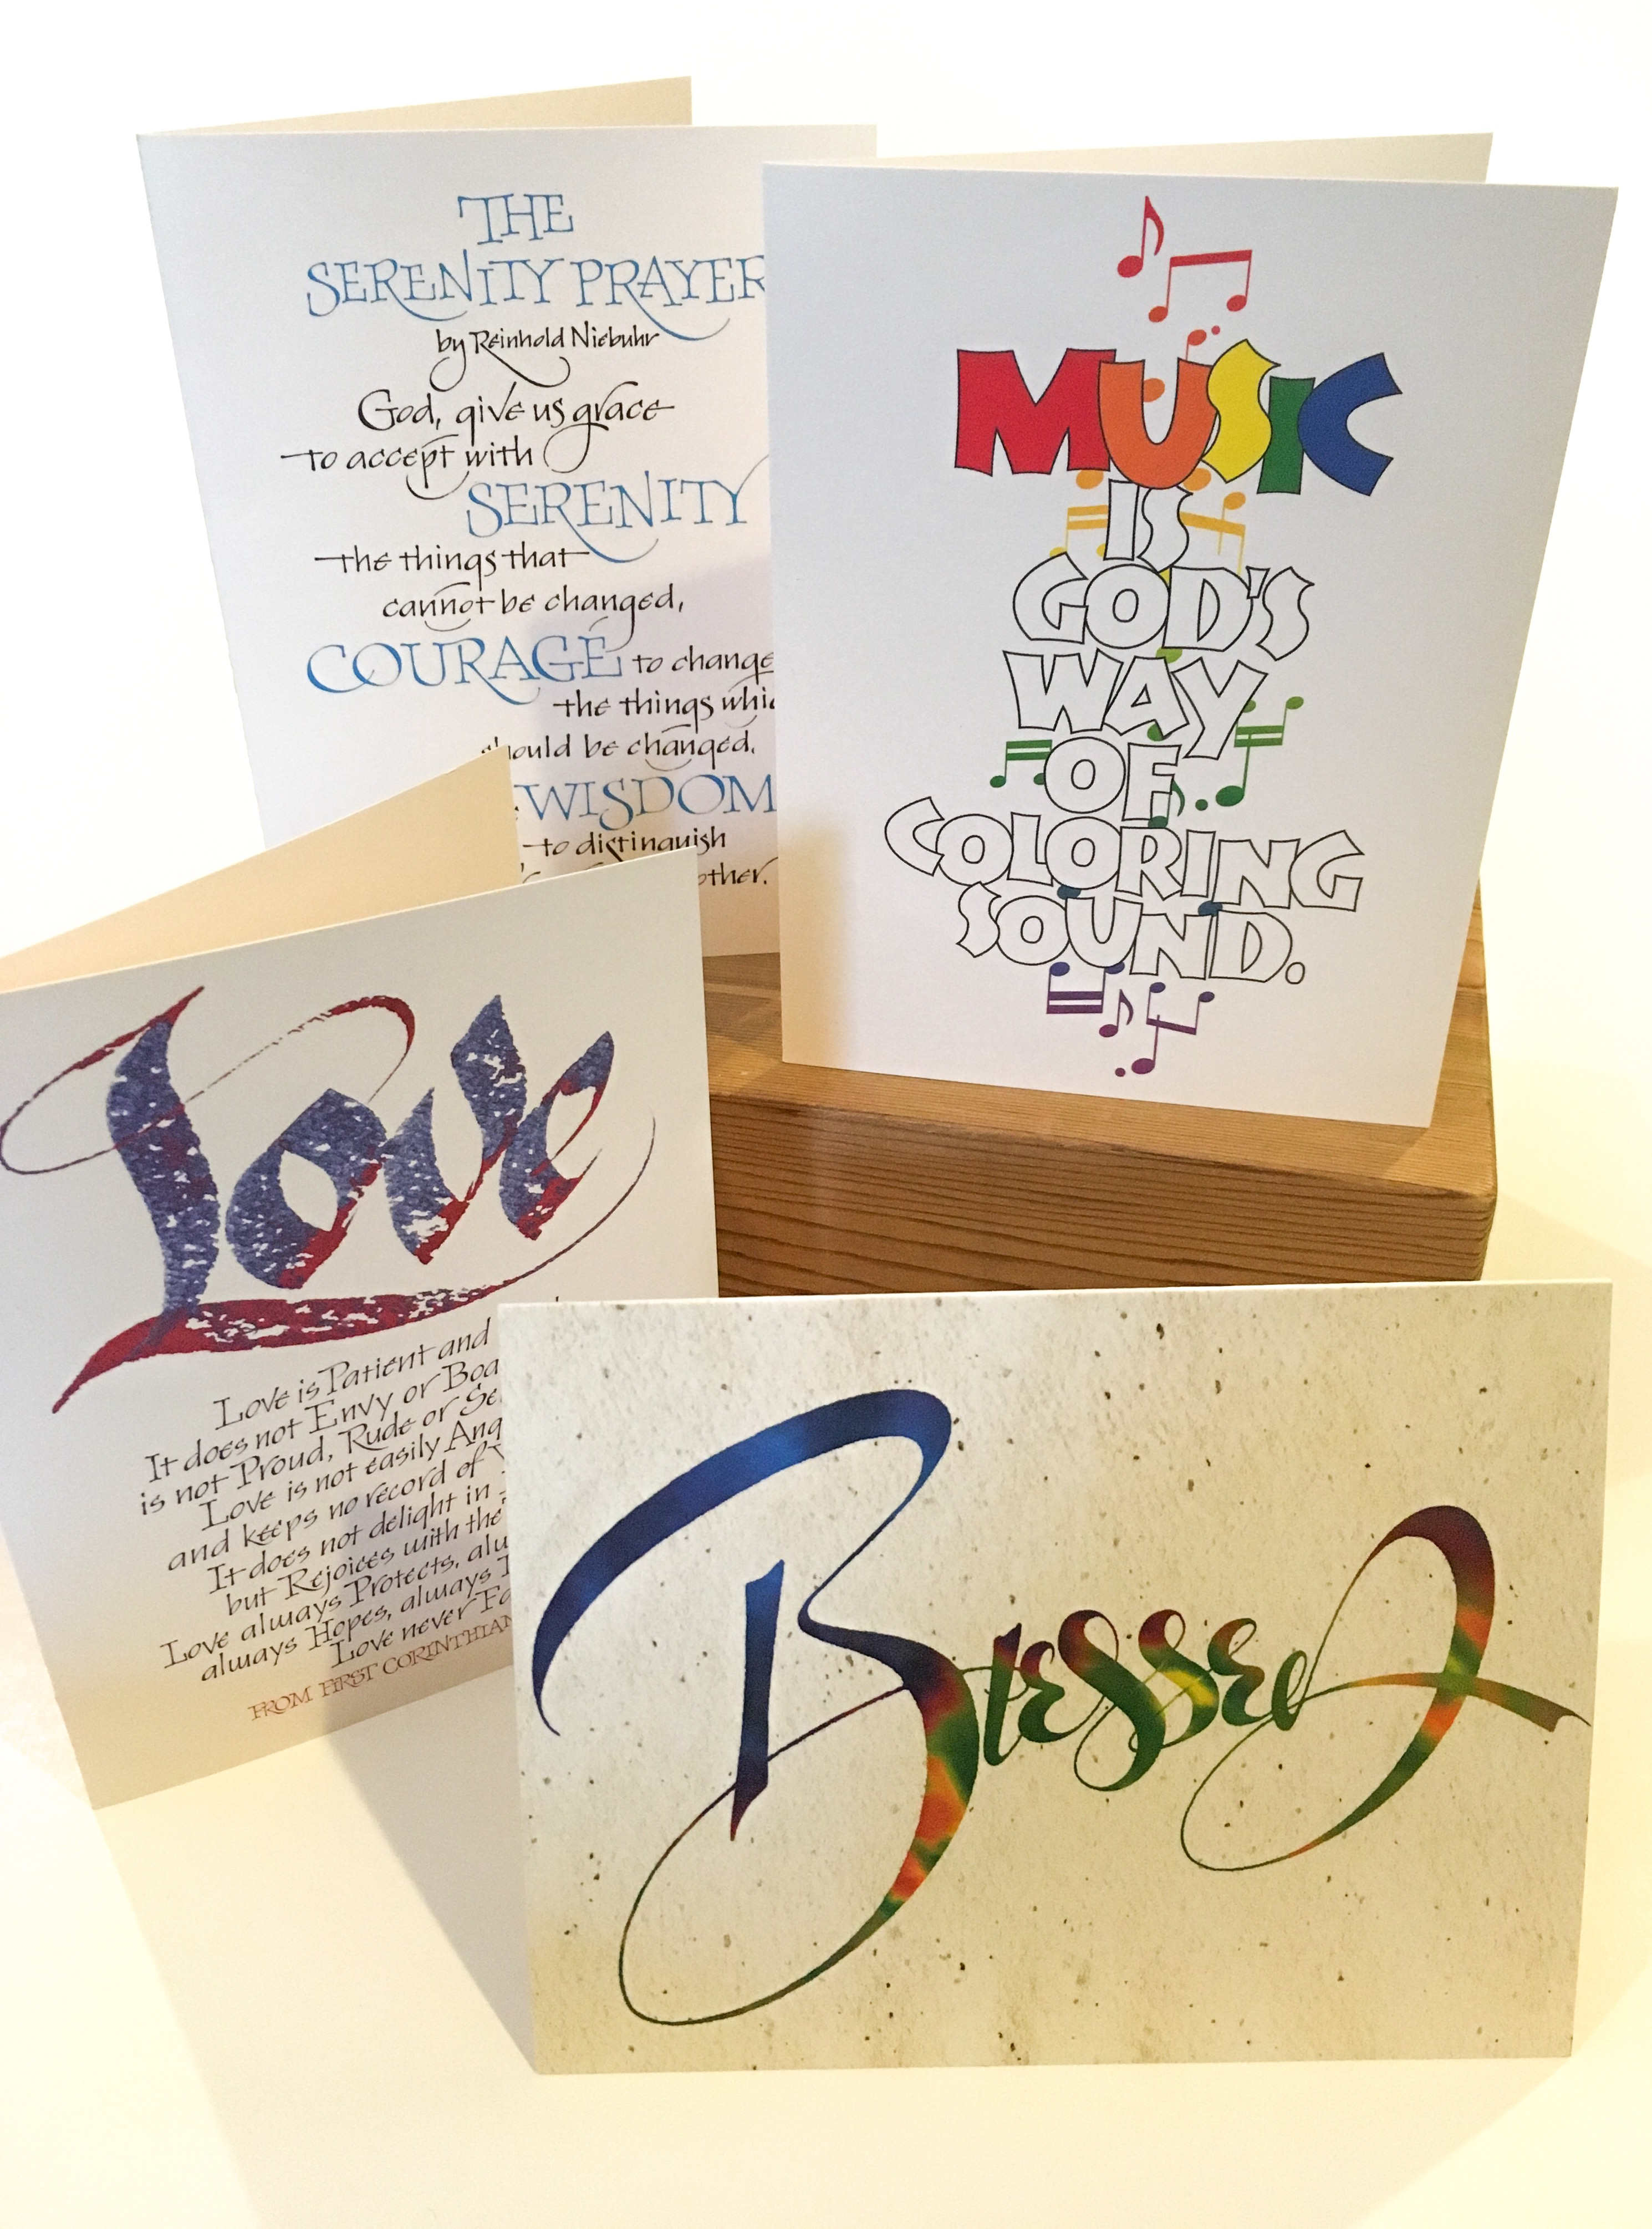 THE
SERENITY PRAYER
by Reinhold Niebuhr
God, give us grace
to accept with
SERENITY
the things that
cannot be changed,
COURAGE to change
the things
should be changed,
WISDOM
to distinguish
other.
MUSIC
IS
GOD'S
WAY
OF
COLORING
SOUND.
Love
Love is Patient and
It does not Envy or
is not Proud, Rude or
Love is not easily
and keeps no record of
It does not delight in
but Rejoices with the
Love always Protects,
always Hopes, always
Love never
FROM FIRST
Blessed